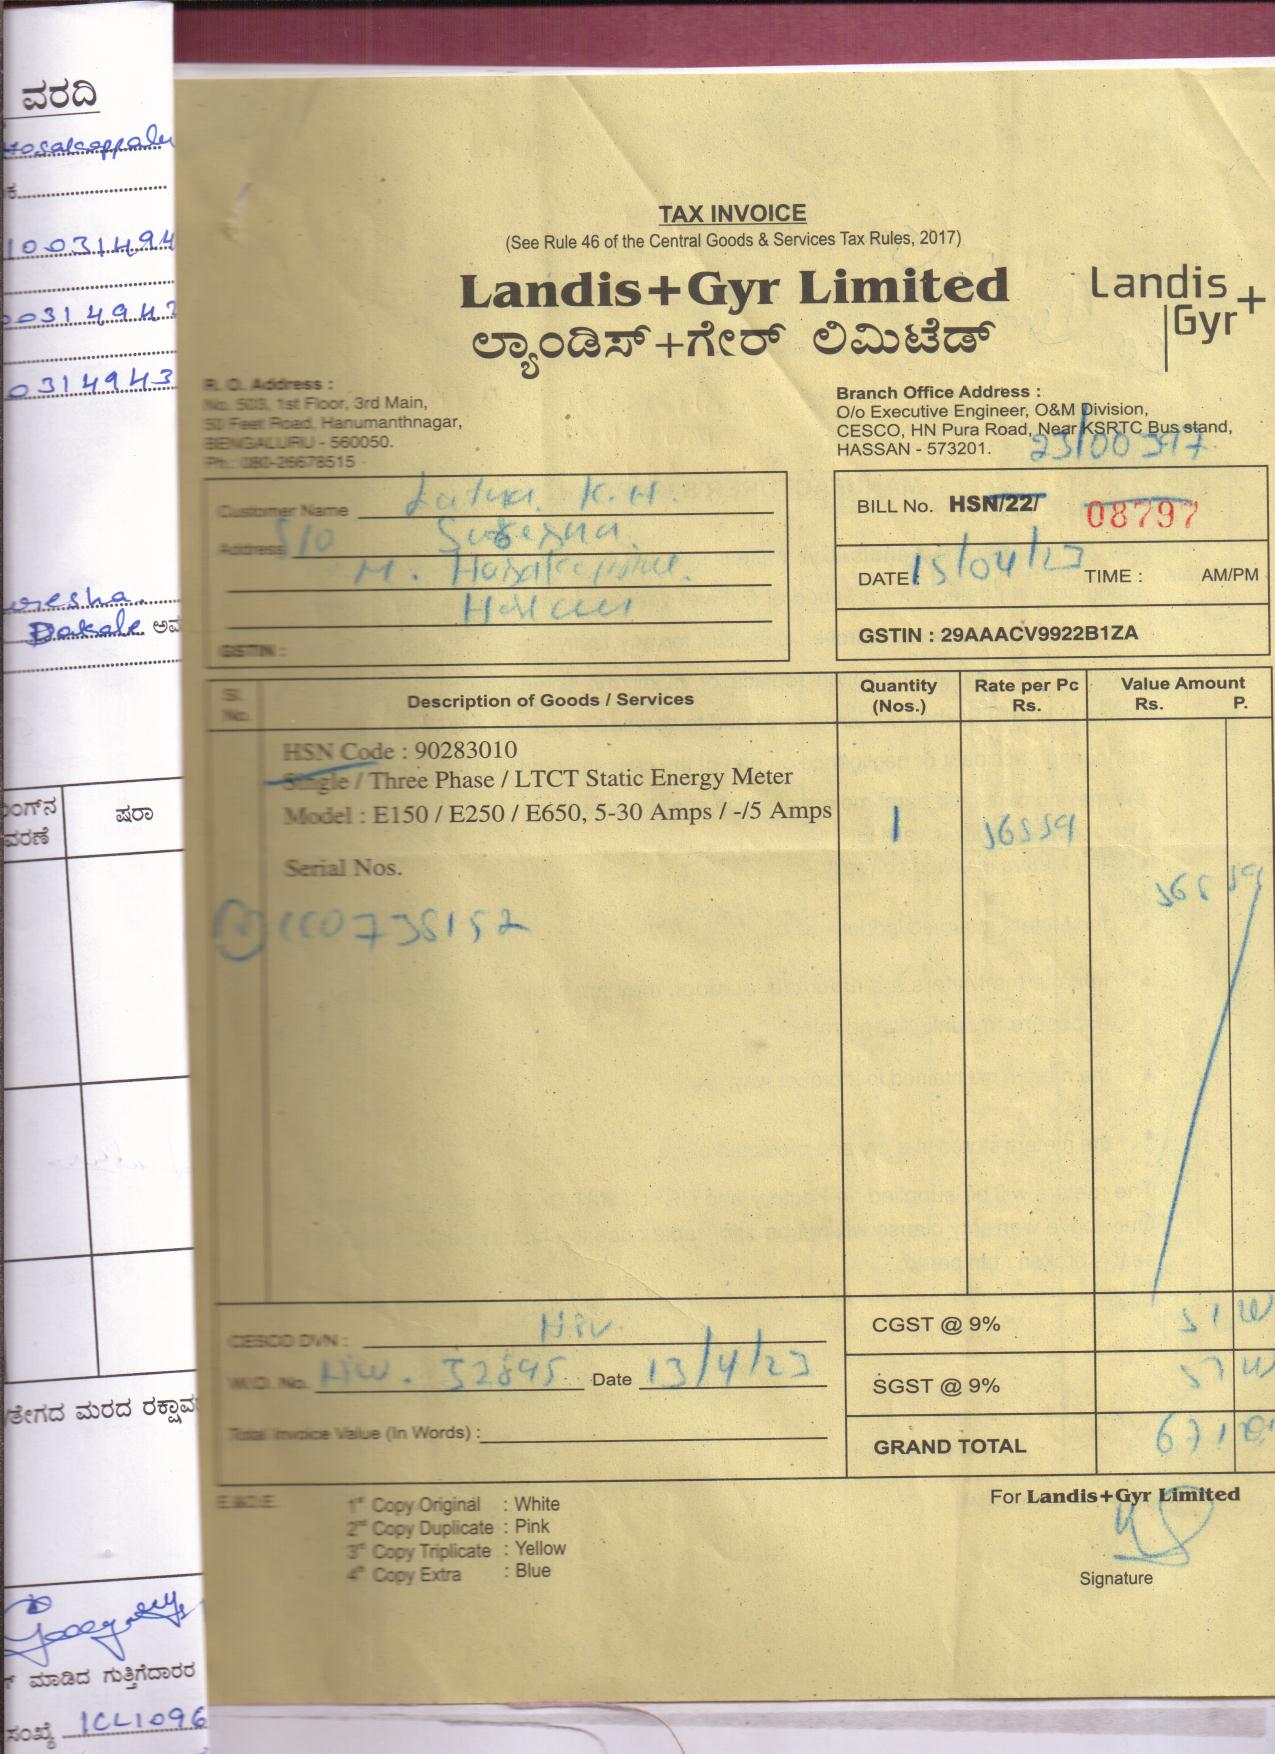 ವರದಿ
Hosakoppalu
10031494
00314942
00314943
uresha.
Dakale ಅವ
ಷರಾ
ವರಣೆ
ಮರದ
ಮಾಡಿದ ಗುತ್ತಿಗೆದಾರರ
ಸಂಖ್ಯೆ 1CL1096
TAX INVOICE
(See Rule 46 of the Central Goods & Services Tax Rules, 2017)
Landis+Gyr Limited
ಲ್ಯಾಂಡಿಸ್+ಗೇರ್ ಲಿಮಿಟೆಡ್
Landis+
Gyr
R. O. Address :
No. 503, 1st Floor, 3rd Main,
50 Feet Road, Hanumanthnagar,
BENGALURU - 560050.
Ph.: 080-26678515
Branch Office Address :
O/o Executive Engineer, O&M Division,
CESCO, HN Pura Road, Near KSRTC Bus stand,
HASSAN - 573201.
23/00397
Customer Name K.H.
Address S/O
M.
Hassan
GSTIN :
BILL No. HSN/22/ 08797
DATE 15/04/23 TIME : AM/PM
GSTIN : 29AAACV9922B1ZA
Sl. No. Description of Goods / Services Quantity (Nos.) Rate per Pc Rs. Value Amount Rs. P.
HSN Code : 90283010
Single / Three Phase / LTCT Static Energy Meter
Model : E150 / E250 / E650, 5-30 Amps / -/5 Amps 1
Serial Nos.
CESCO DVN :
W.O. No. Date 13/4/23
Total Invoice Value (In Words) :
CGST @ 9%
SGST @ 9%
GRAND TOTAL 671
E.&O.E.
1st Copy Original : White
2nd Copy Duplicate : Pink
3rd Copy Triplicate : Yellow
4th Copy Extra : Blue
For Landis+Gyr Limited
Signature